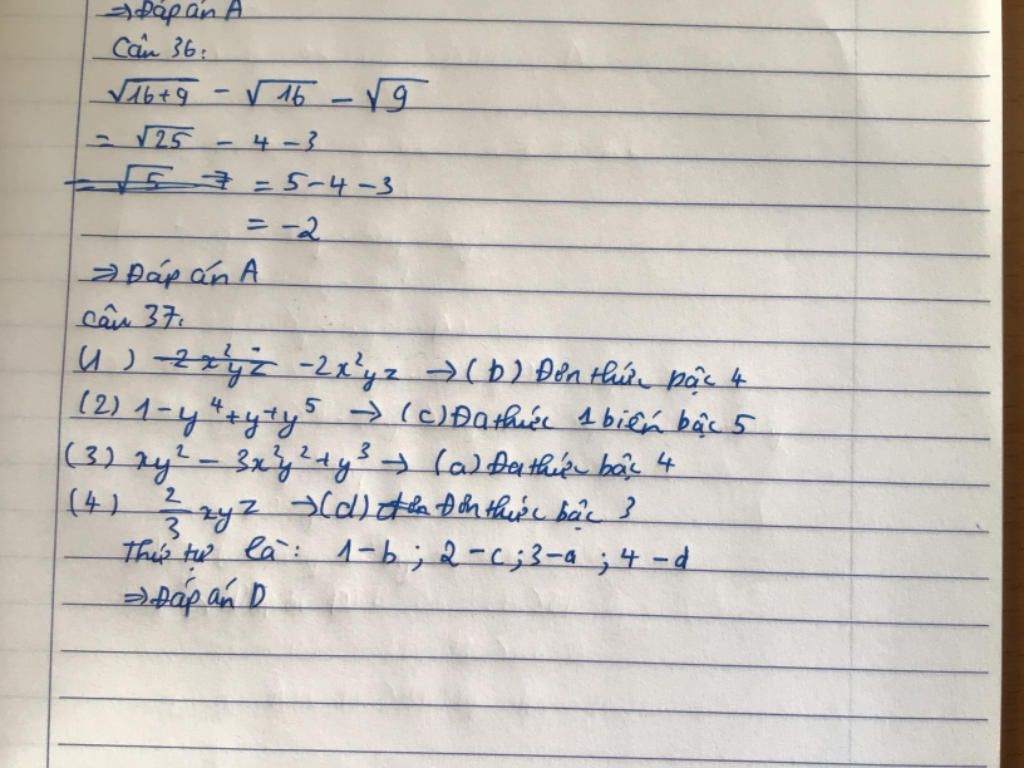 ⇒ Đáp án A
Câu 36:
√16+9 - √16 - √9
= √25 - 4 - 3
= √5 - 7 = 5 - 4 - 3
= -2
⇒ Đáp án A
Câu 37:
(1) -2x²yz -2x²yz → (b) Đơn thức bậc 4
(2) 1 - y⁴ + y + y⁵ → (c) Đa thức 1 biến bậc 5
(3) xy² - 3x²y² + y³ → (a) Đa thức bậc 4
(4) 2/3 xyz → (d) Đơn thức bậc 3
Thứ tự là: 1-b ; 2-c ; 3-a ; 4-d
⇒ Đáp án D